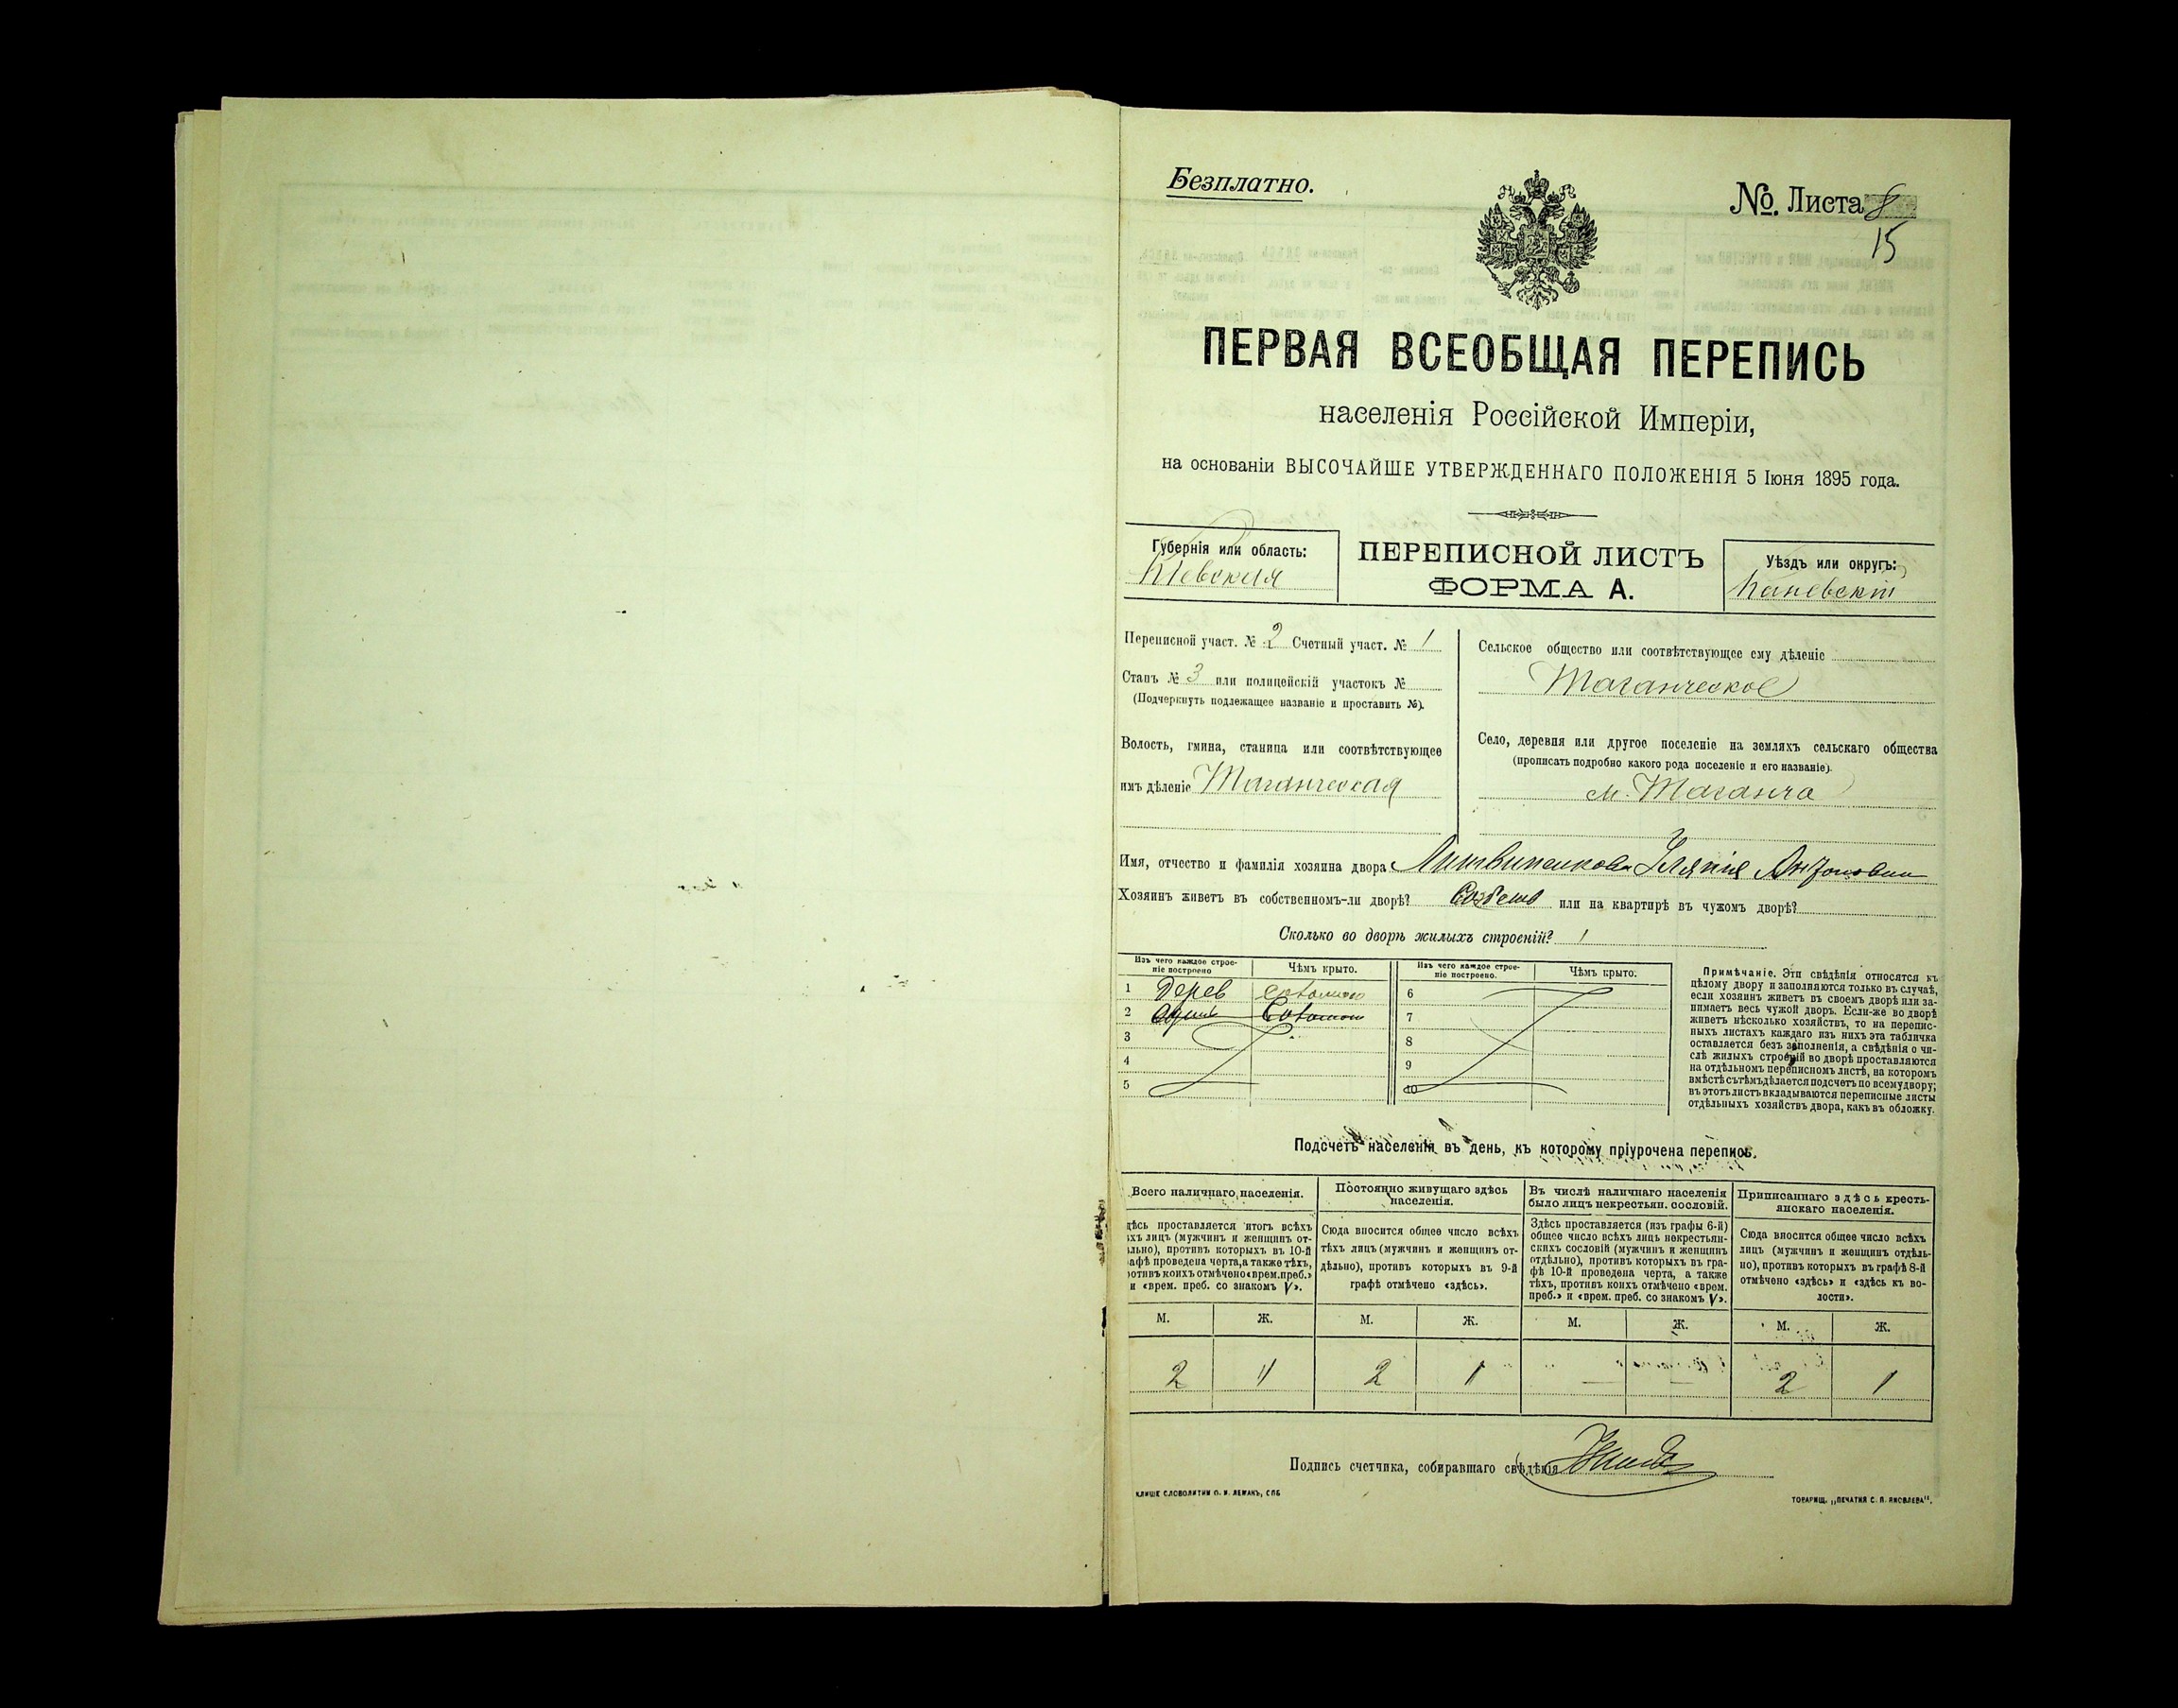 Безплатно.
№. Листа 8
15
ПЕРВАЯ ВСЕОБЩАЯ ПЕРЕПИСЬ
населенія Россійской Имперіи,
на основаніи ВЫСОЧАЙШЕ УТВЕРЖДЕННАГО ПОЛОЖЕНІЯ 5 Іюня 1895 года.
Губернія или область:
Кіевская
ПЕРЕПИСНОЙ ЛИСТЪ
ФОРМА А.
Уѣздъ или округъ:
Каневскій
Переписной участ. № 2 Счетный участ. № 1
Станъ № 3 или полицейскій участокъ №
(Подчеркнуть подлежащее названіе и проставить №).
Волость, гмина, станица или соотвѣтствующее
имъ дѣленіе Таганческая
Сельское общество или соотвѣтствующее ему дѣленіе
Таганческое
Село, деревня или другое поселеніе на земляхъ сельскаго общества
(прописать подробно какого рода поселеніе и его названіе).
м. Таганча
Имя, отчество и фамилія хозяина двора
Хозяинъ живетъ въ собственномъ-ли дворѣ? или на квартирѣ въ чужомъ дворѣ?
Сколько во дворѣ жилыхъ строеній? 1
Изъ чего каждое строе-
ніе построено
Чѣмъ крыто.
Изъ чего каждое строе-
ніе построено.
Чѣмъ крыто.
1 Дерев соломою
2 Соломою
3
4
5
6
7
8
9
10
Примѣчаніе. Эти свѣдѣнія относятся къ
цѣлому двору и заполняются только въ случаѣ,
если хозяинъ живетъ въ своемъ дворѣ или за-
нимаетъ весь чужой дворъ. Если-же во дворѣ
живетъ нѣсколько хозяйствъ, то на перепис-
ныхъ листахъ каждаго изъ нихъ эта табличка
оставляется безъ заполненія, а свѣдѣнія о чи-
слѣ жилыхъ строеній во дворѣ проставляются
на отдѣльномъ переписномъ листѣ, на которомъ
вмѣстѣ съ тѣмъ дѣлается подсчетъ по всему двору;
въ этотъ листъ вкладываются переписные листы
отдѣльныхъ хозяйствъ двора, какъ въ обложку.
Подсчетъ населенія въ день, къ которому пріурочена перепись.
Всего наличнаго населенія.
дѣсь проставляется итогъ всѣхъ
ѣхъ лицъ (мужчинъ и женщинъ от-
ѣльно), противъ которыхъ въ 10-й
рафѣ проведена черта, а также тѣхъ,
ротивъ коихъ отмѣчено «врем. преб.»
и «врем. преб. со знакомъ V».
Постоянно живущаго здѣсь
населенія.
Сюда вносится общее число всѣхъ
тѣхъ лицъ (мужчинъ и женщинъ от-
дѣльно), противъ которыхъ въ 9-й
графѣ отмѣчено «здѣсь».
Въ числѣ наличнаго населенія
было лицъ некрестьян. сословій.
Здѣсь проставляется (изъ графы 6-й)
общее число всѣхъ лицъ некрестьян-
скихъ сословій (мужчинъ и женщинъ
отдѣльно), противъ которыхъ въ гра-
фѣ 10-й проведена черта, а также
тѣхъ, противъ коихъ отмѣчено «врем.
преб.» и «врем. преб. со знакомъ V».
Приписаннаго здѣсь кресть-
янскаго населенія.
Сюда вносится общее число всѣхъ
лицъ (мужчинъ и женщинъ отдѣль-
но), противъ которыхъ въ графѣ 8-й
отмѣчено «здѣсь» и «здѣсь къ во-
лости».
М. Ж. М. Ж. М. Ж. М. Ж.
2 1 2 1 — — 2 1
Подпись счетчика, собиравшаго свѣдѣнія
КЛИШЕ СЛОВОЛИТНИ О. И. ЛЕМАНЪ, СПБ
ТОВАРИЩ. „ПЕЧАТНЯ С. П. ЯКОВЛЕВА".